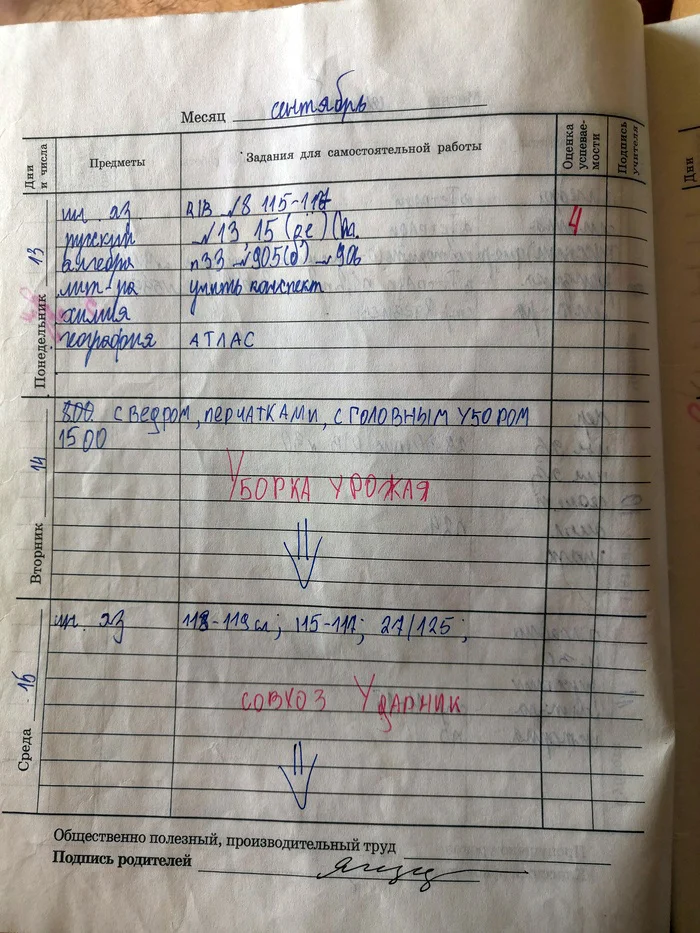 Месяц сентябрь
Дни и числа Предметы Задания для самостоятельной работы Оценка успевае-мости Подпись учителя
Понедельник 13
ин. яз №8 115-117
русский №13, 15 4
алгебра п33 №905(б) №906
лит-ра учить конспект
химия
география АТЛАС
Вторник 14
800 С ВЕДРОМ, ПЕРЧАТКАМИ, С ГОЛОВНЫМ УБОРОМ
1500
УБОРКА УРОЖАЯ
Среда 15
ин. яз 118-119 сл; 115-117; 27/125;
СОВХОЗ УДАРНИК
Общественно полезный, производительный труд
Подпись родителей
Дни